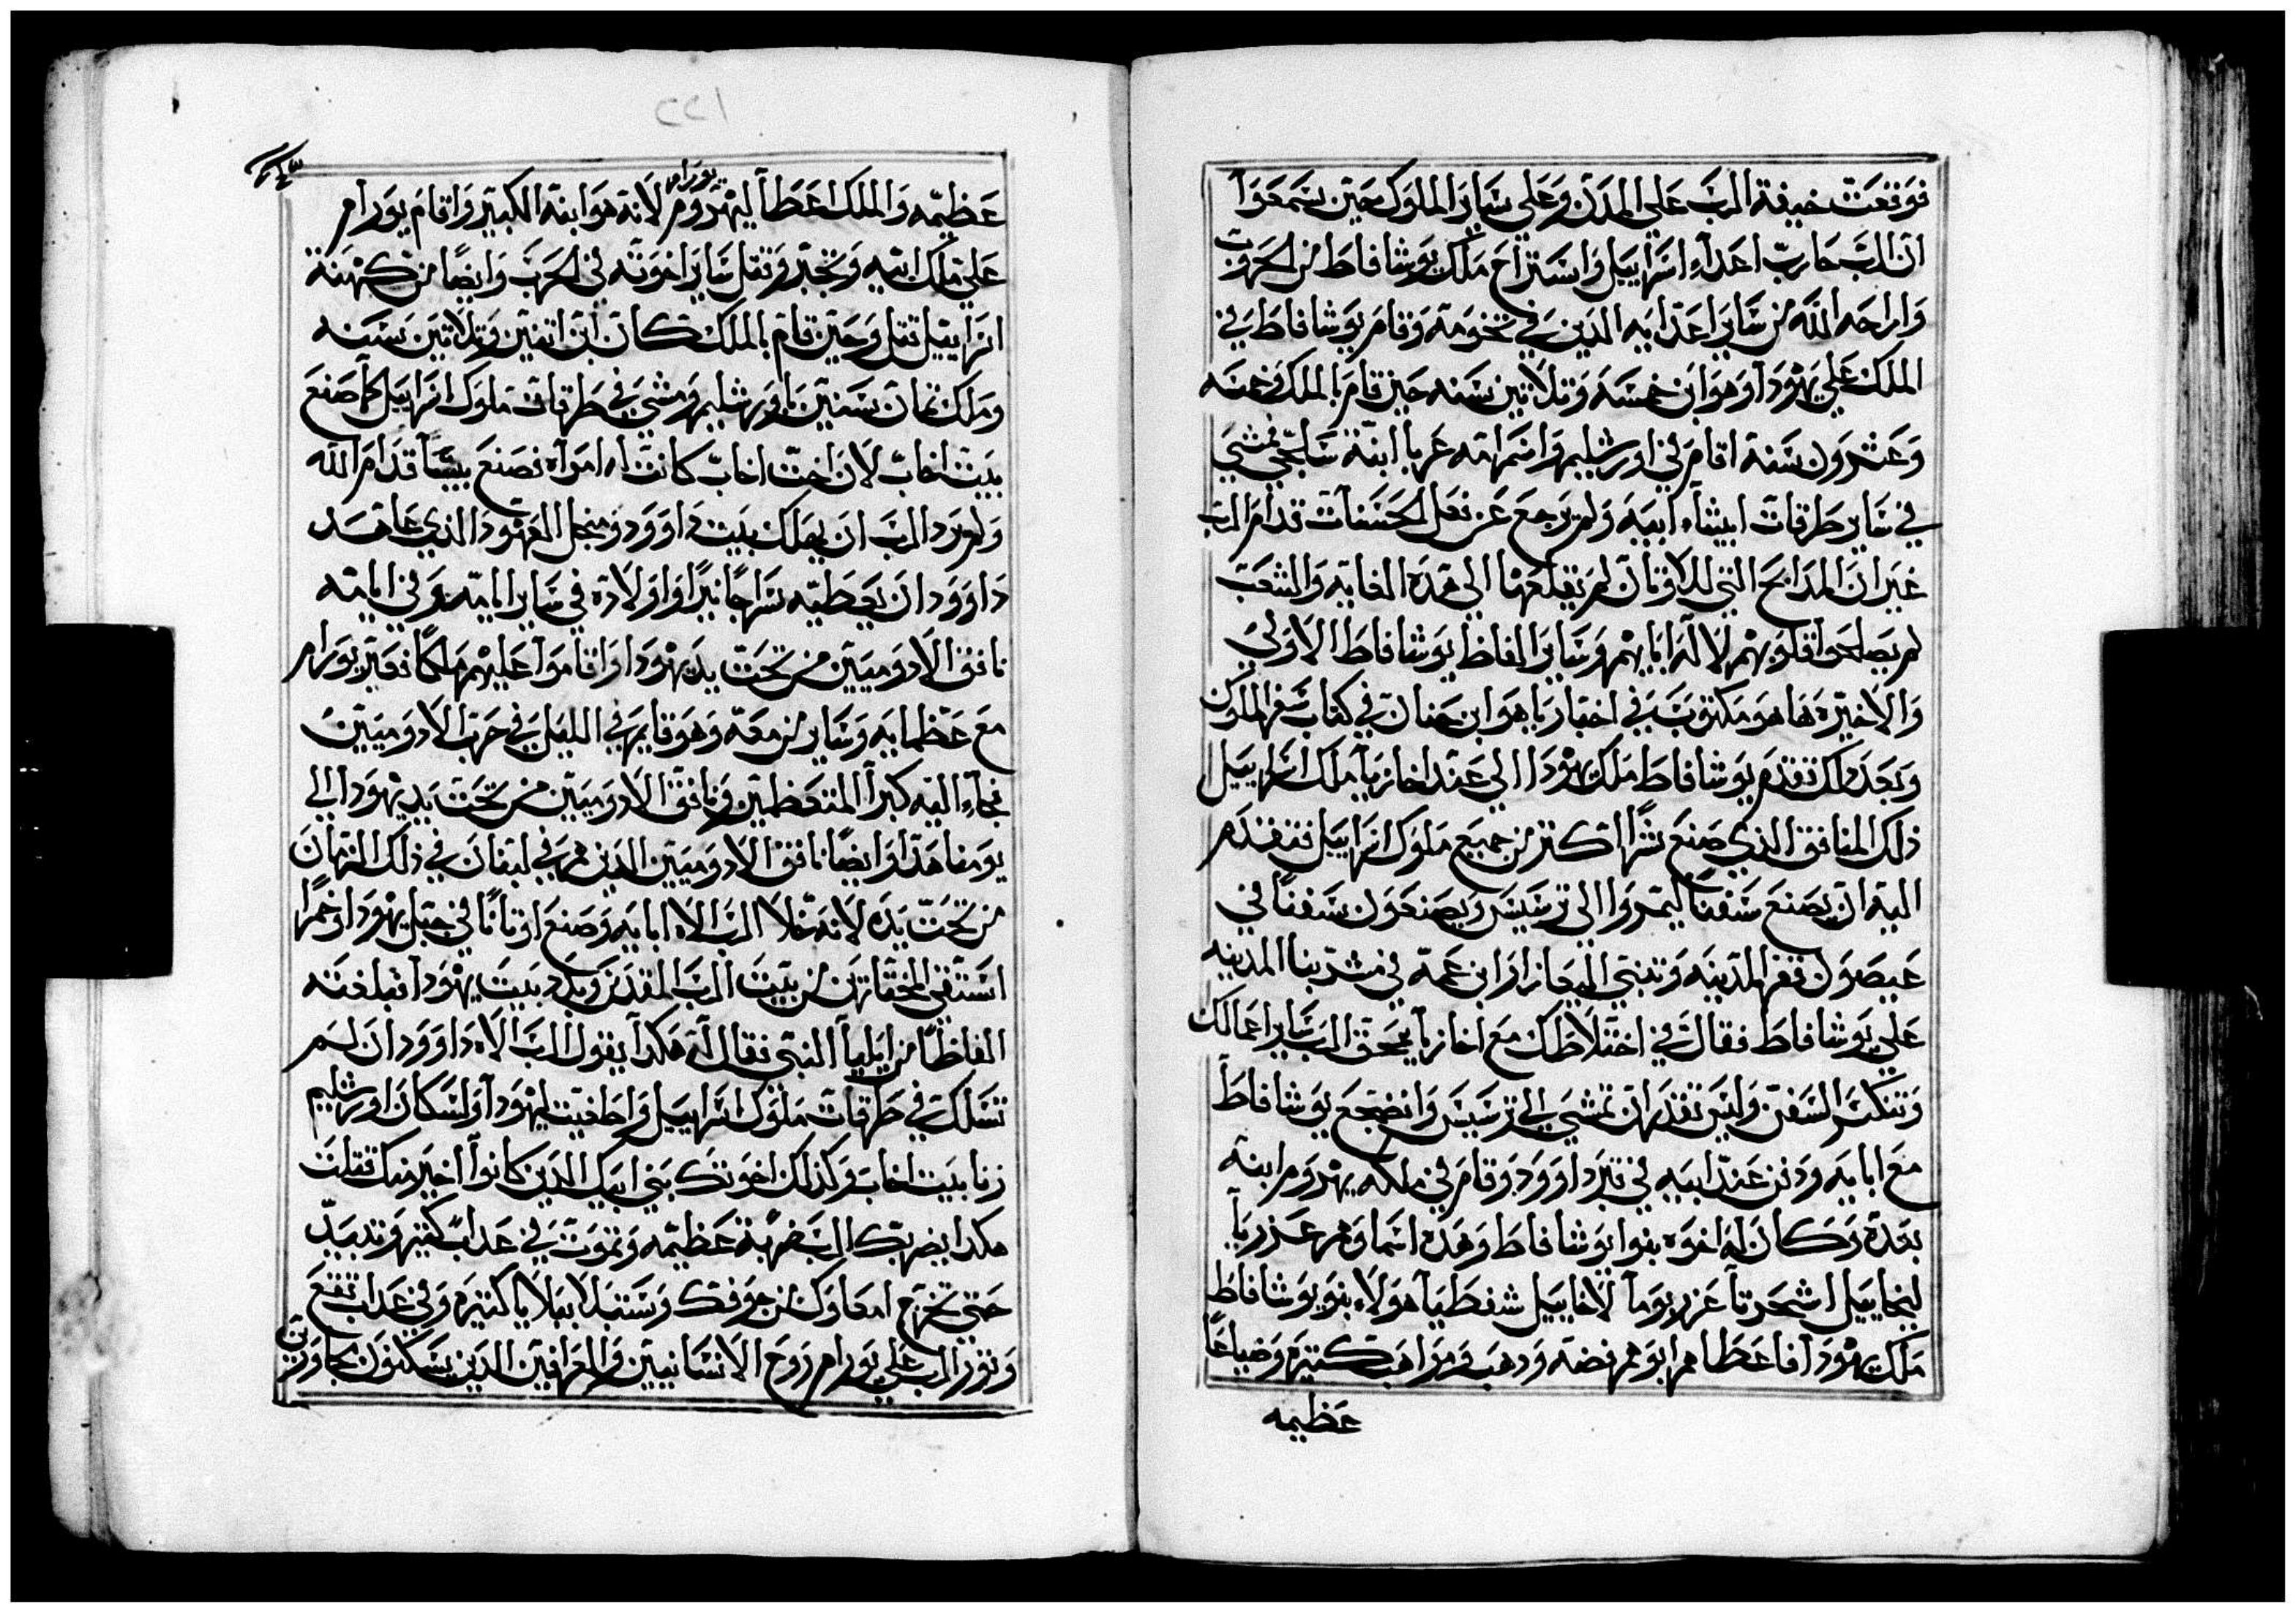 فوقعت خيفة الرب علي المدن وعلي ساير الملوك حين سمعوا
ان الرب حارب اعداء اسراييل واستراح ملك يوشافاط من الحروب
واراحه الله من ساير اعدايه الدين في تخومه وقام يوشافاط في
الملك علي يهودا وهو ابن خمسه وتلاتين سنه حين قام بالملك خمسه
وعشرون سنة اقام في اورشليم واسم امه عربا ابنة سالحي فمشي
في ساير طرقات ايشاء ابيه ولم يرجع عن فعل الحسنات قدام الرب
غير ان المدابح التي للاوتان لم يقلعها الي هده الغايه والشعب
لم يصلحوا قلوبهم لاله ابايهم وساير الفاظ يوشافاط الاولي
والاخيره ها هو مكتوب في اخبار ياهو ابن حنان في كتاب سفر الملوك
وبعد دلك تقدم يوشافاط ملك يهودا الي عند اخازيا ملك اسراييل
دلك المنافق الذي صنع شرا اكتر من جميع ملوك اسراييل فتقدم
اليه ان يصنع سفنا ليمروا الي ترسيس ويصنعون سفنا في
عيصول فقر المدينه وتنبي اليعازار ابن عمه في مشرينا المدينه
علي يوشافاط فقال في اختلاطك مع اخازيا يمحق الرب ساير اعمالك
وتنكسر السفن وليس تقدر ان تمشي الي ترسيس وانضجع يوشافاط
مع ابايه ودفن عند ابيه في قبر داوود وقام في ملكه يهروم ابنه
بعده وكان له اخوه بنوا يوشافاط وهده اسماوهم عذريا
ليخاييل اشحرتا عزريوما لاخاييل شفطيا هولاء بنو يوشافاط
ملك يهودا فاعطاهم ابوهم فضه ودهب ومواهب كتيره وضياعا
عظيمه
٢٢١
عظيمه والملك اعطا ليهروم لانه هو ابنه الكبير واقام يورام
يورام
علي ملك ابيه وتجبر وقتل ساير اخوته في الحرب وايضا من كهنة
اسراييل قتل وحين قام بالملك كان ابن اتنين وتلاتين سنه
وملك تمان سنين باورشليم ومشي في طرقات ملوك اسراييل كما صنع
بيت اخاب لان اخت اخاب كانت له امراه فصنع بيسا قدام الله
ولم يرد الرب ان يهلك بيت داوود من اجل العهود الذي عاهد
داوود ان يعطيه سراجا نيرا واولاده في ساير ايامه وفي ايامه
نافق الادوميين من تحت يد يهودا واقاموا عليهم ملكا فعبر يورام
مع عظمايه وساير من معه وهو قايم في الليل في حرب الادوميين
فجاء اليه كبرا المتعظمين ونافق الادوميين من تحت يد يهودا الي
يومنا هدا وايضا نافق الادوميين الدين هم في لبنان في ذلك الزمان
من تحت يده لانه خلا الرب الاه ابايه وصنع اوتانا في جبل يهودا وخمرا
استقي المختارين من بيت الرب المقدس وبدد بيت يهودا فبلغته
الفاظا من ايليا النبي فقال له هكدا يقول الرب الاه داوود ان لم
تسلك في طرقات ملوك اسراييل واطغيت يهودا ولسكان اورشليم
زنا بيت اخاب وكذلك اخوتك بني ابيك الدين كانوا اخير منك قتلت
هكدا يضربك الرب ضربة عظيمه وتموت في عداب كتير وتدبيد
حتي تخرج امعاوك من جوفك وستبلا ببلايا كتيره وفي عداب تقع
وتور الرب علي يورام روح الانسانيين والعرافين الدين يسكنون مجاورين